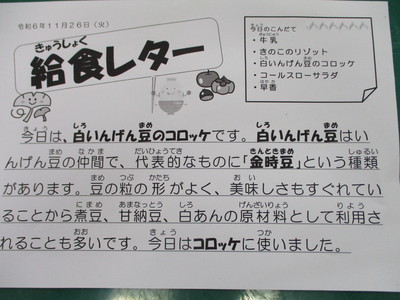 令和6年11月26日（火）
給食レター
今日のこんだて
・牛乳
・きのこのリゾット
・白いんげん豆のコロッケ
・コールスローサラダ
・早香
今日は、白いんげん豆のコロッケです。白いんげん豆はい
んげん豆の仲間で、代表的なものに「金時豆」という種類
があります。豆の粒の形がよく、美味しさもすぐれてい
ることから煮豆、甘納豆、白あんの原材料として利用さ
れることも多いです。今日はコロッケに使いました。